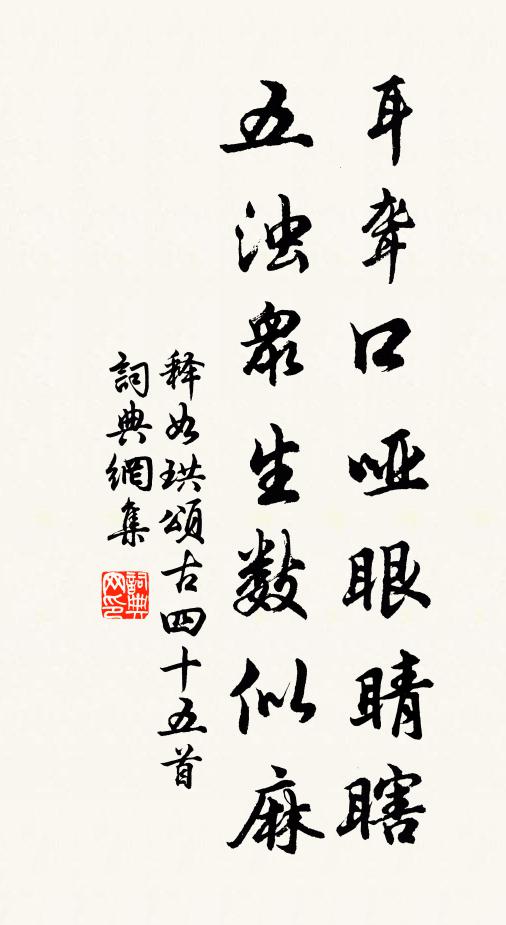 耳聋口哑眼睛瞎
五浊眾生数似麻
释如珙頌古四十五首
詞典網集
詞典网印